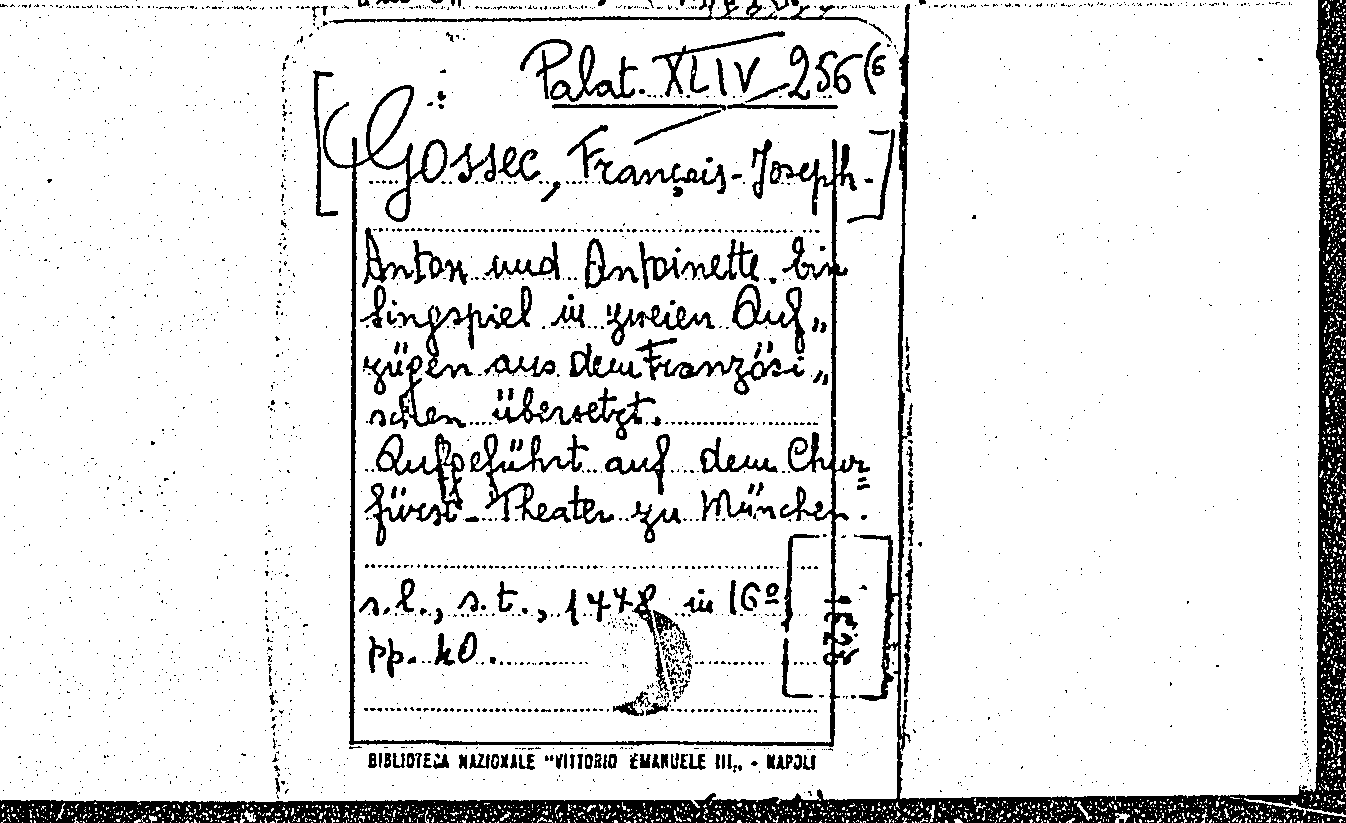 Palat. XLIV 256(6
[Gossec, François-Joseph-]
Anton und Antoinette. Ein
Singspiel in zweien Auf„
zügen aus dem Französi„
schen übersetzt.
Aufgeführt auf dem Chur=
fürst-Theater zu München.
s.l., s.t., 1778 in 16º
pp. 40.
BIBLIOTECA NAZIONALE "VITTORIO EMANUELE III„ - NAPOLI